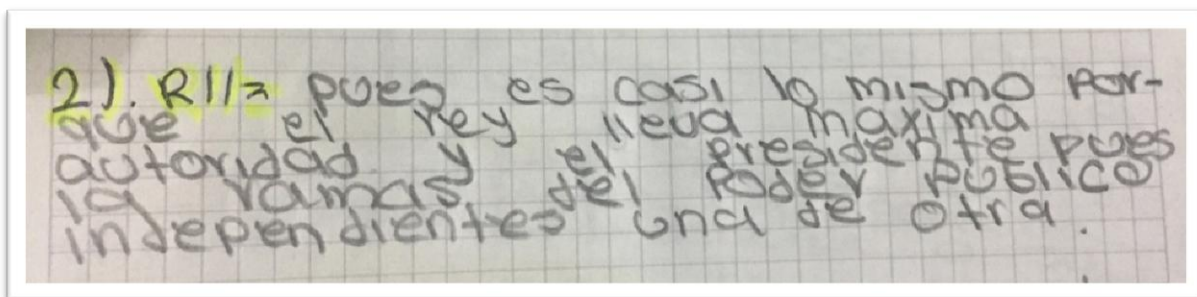 2). R//= pues es casi lo mismo por-
que el rey lleva maxima
autoridad y el presidente pues
la ramas del poder publico
independientes una de otra.